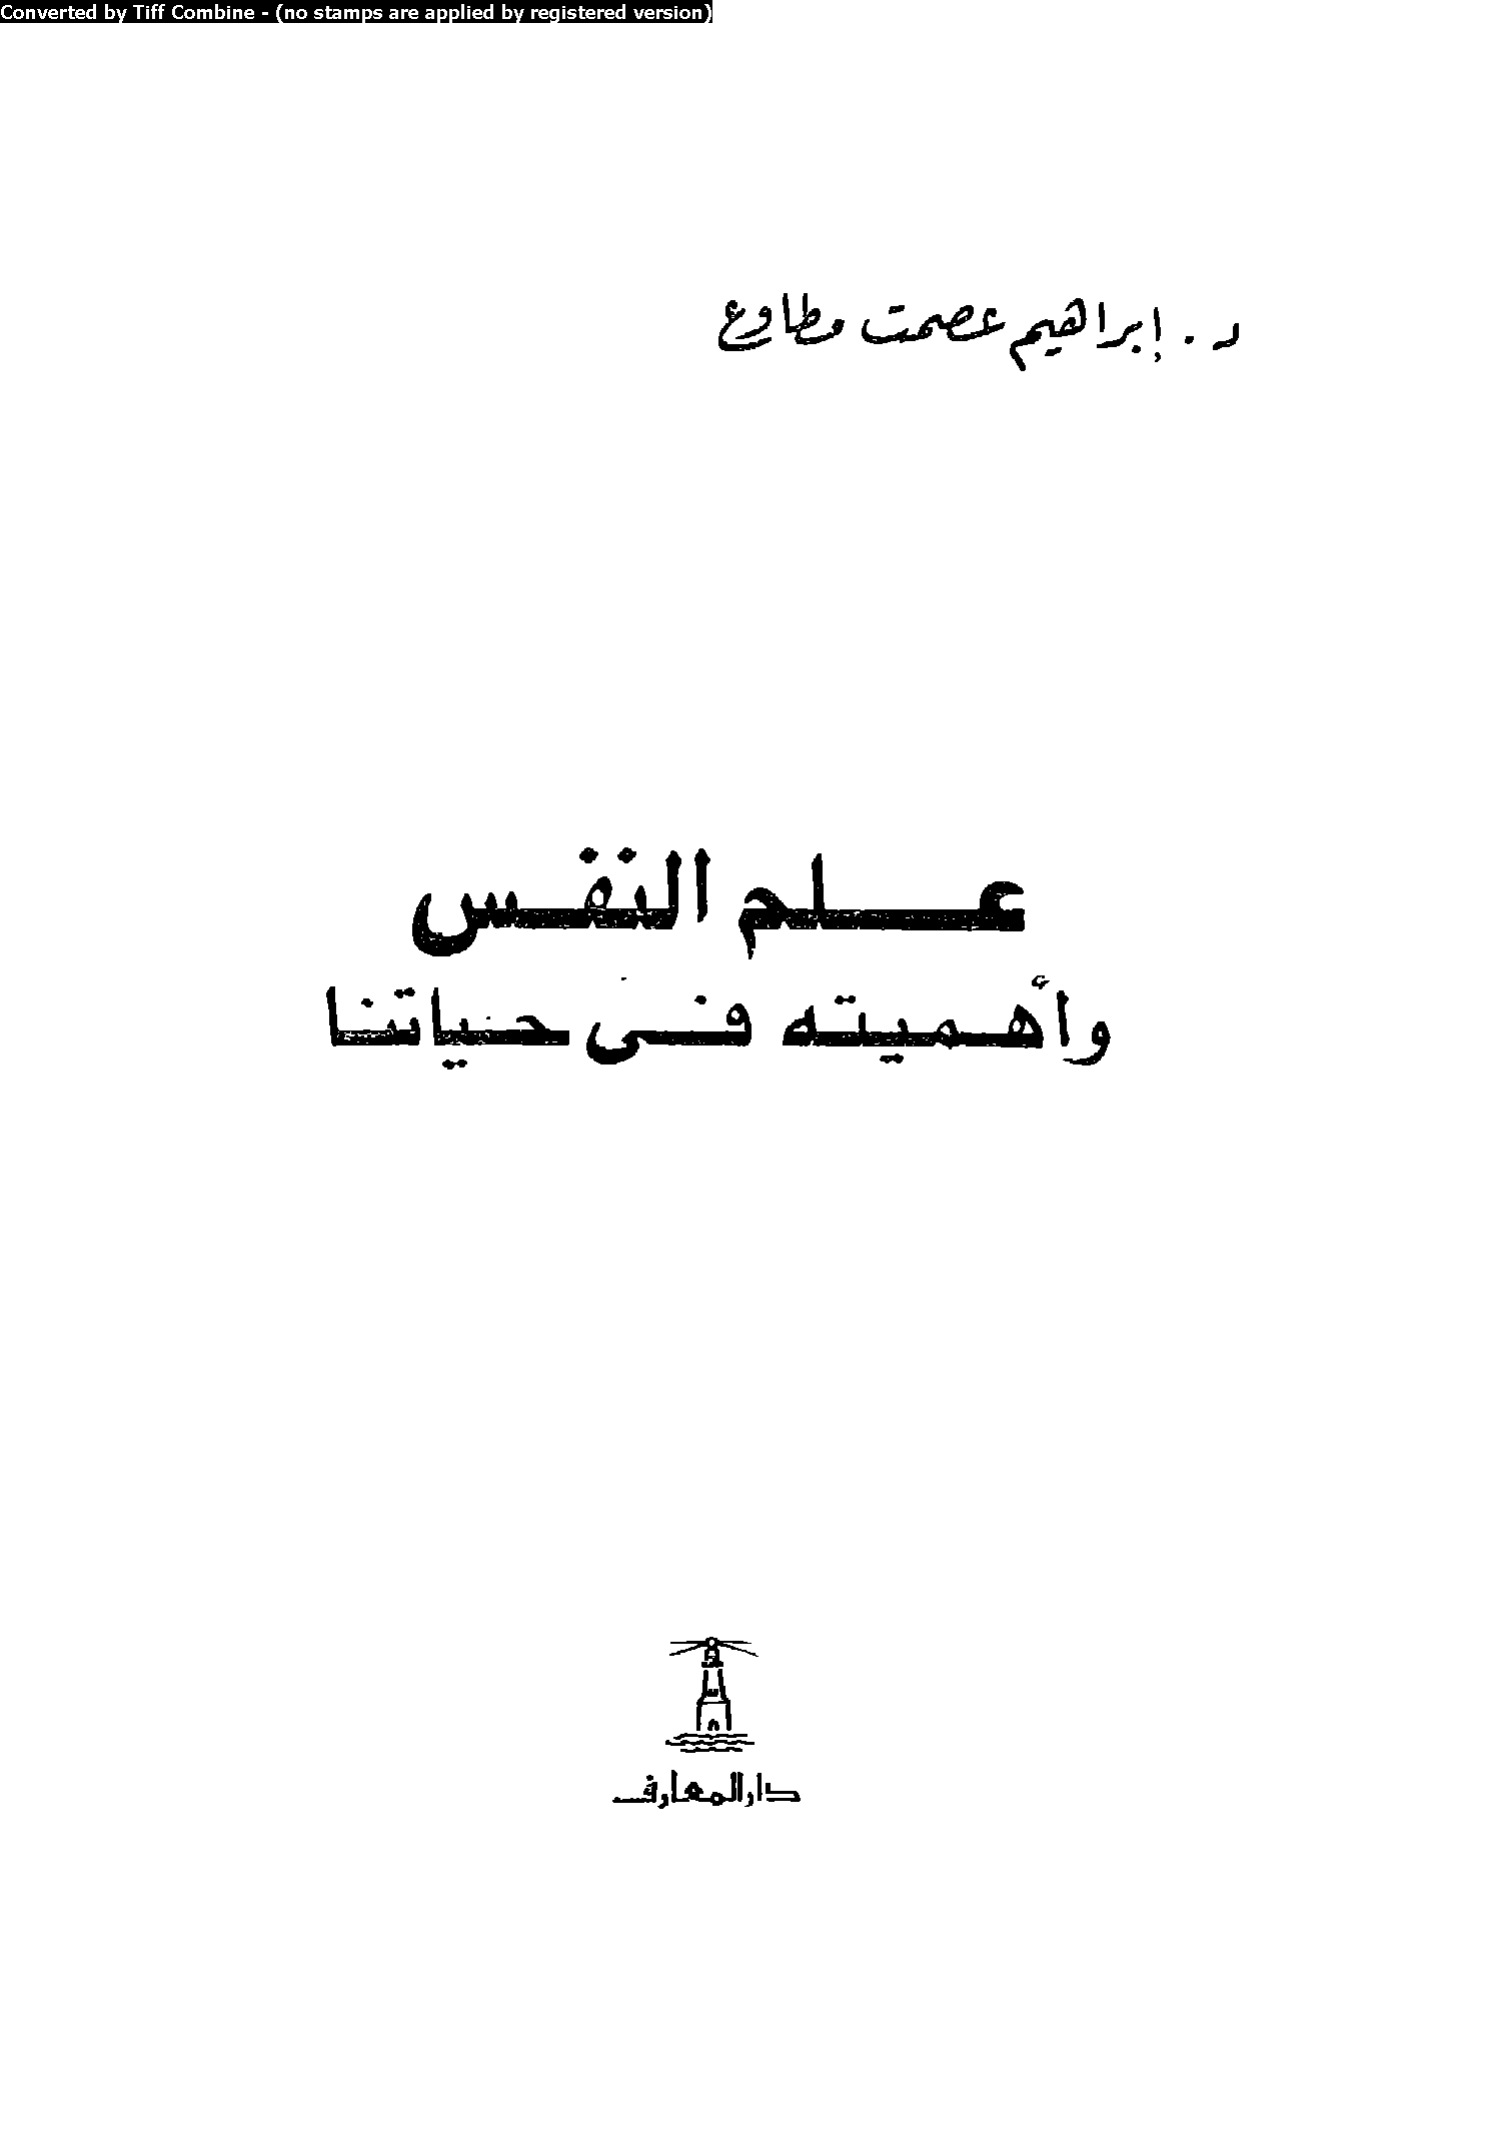 Converted by Tiff Combine - (no stamps are applied by registered version)
د . إبراهيم عصمت مطاوع
علم النفس
وأهميته فى حياتنا
دار المعارف